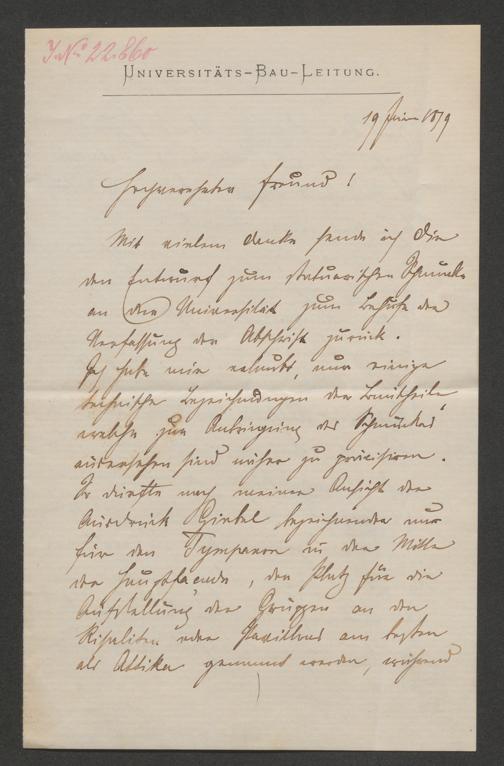 J. № 22.860
UNIVERSITÄTS-BAU-LEITUNG.
19 Juni 1879
Hochverehrter Freund!
Mit vielem Danke sende ich Dir
den Entwurf zum statuarischen Schmucke
an der Universität zum Behufe der
Verfassung der Abschrift zurück.
Ich habe mir erlaubt, nur einige
technische Bezeichnungen der Bautheile,
welche zur Anbringung des Schmuckes
ausersehen sind näher zu präcisiren.
So dürfte nach meiner Ansicht der
Ausdruck Giebel bezeichnender nur
für den Tympanon in der Mitte
der Hauptfaçade, der Platz für die
Aufstellung der Gruppen an den
Risaliten oder Pavillons am besten
als Attika genannt werden, während